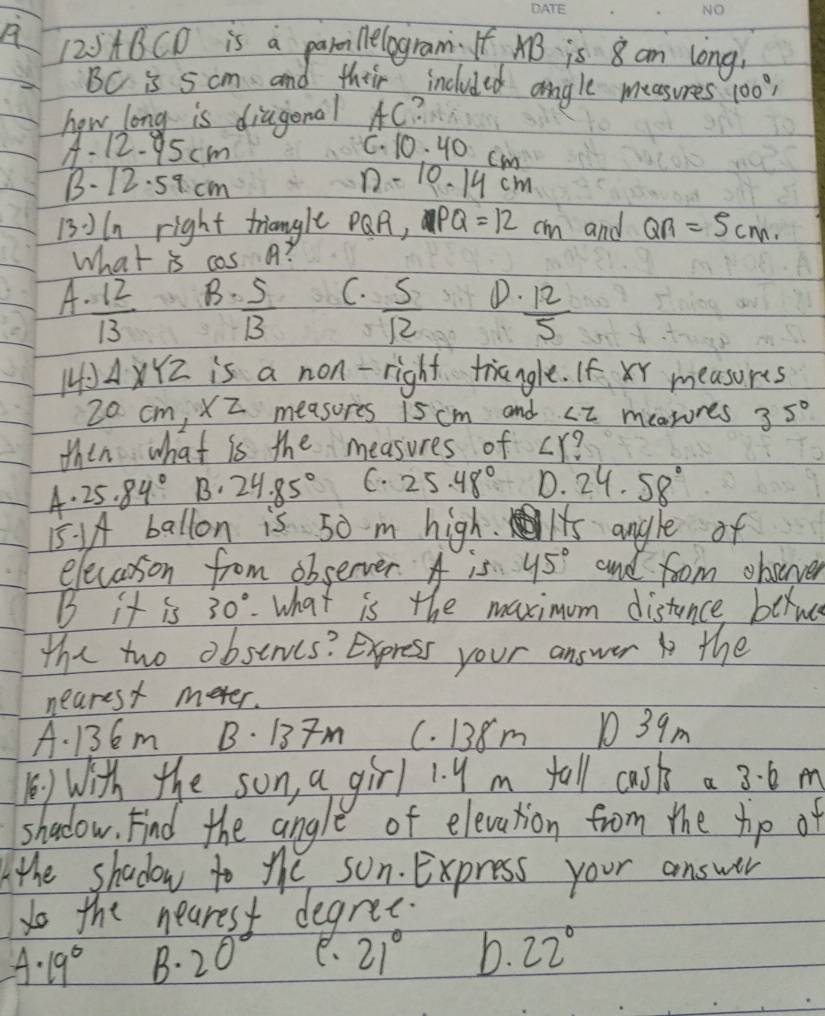 DATE . . NO
12.) ABCD is a parillelogram. If AB is 8 cm long,
BC is 5 cm and their included angle measures 100°,
how long is diagonal AC?
A. 12.95cm C. 10.40 cm
B. 12.59 cm D. 10.14 cm
13.) In right triangle PQR, PQ = 12 cm and QR = 5cm.
What is cos R?
A. 12/13 B. 5/13 C. 5/12 D. 12/5
14.) Δ XYZ is a non-right triangle. If XY measures
20 cm, XZ measures 15cm and <Z measures 35°
then what is the measures of <Y?
A. 25.84° B. 24.85° C. 25.48° D. 24.58°
15.) A ballon is 50 m high. Its angle of
elevation from observer A is 45° and from observer
B it is 30°. What is the maximum distance betwe
the two observes? Express your answer to the
nearest meter.
A. 136m B. 137m C. 138m D 39m
16.) With the sun, a girl 1.4 m tall casts a 3.6 m
shadow. Find the angle of elevation from the tip of
the shadow to the sun. Express your answer
to the nearest degree.
A. 19° B. 20° C. 21° D. 22°